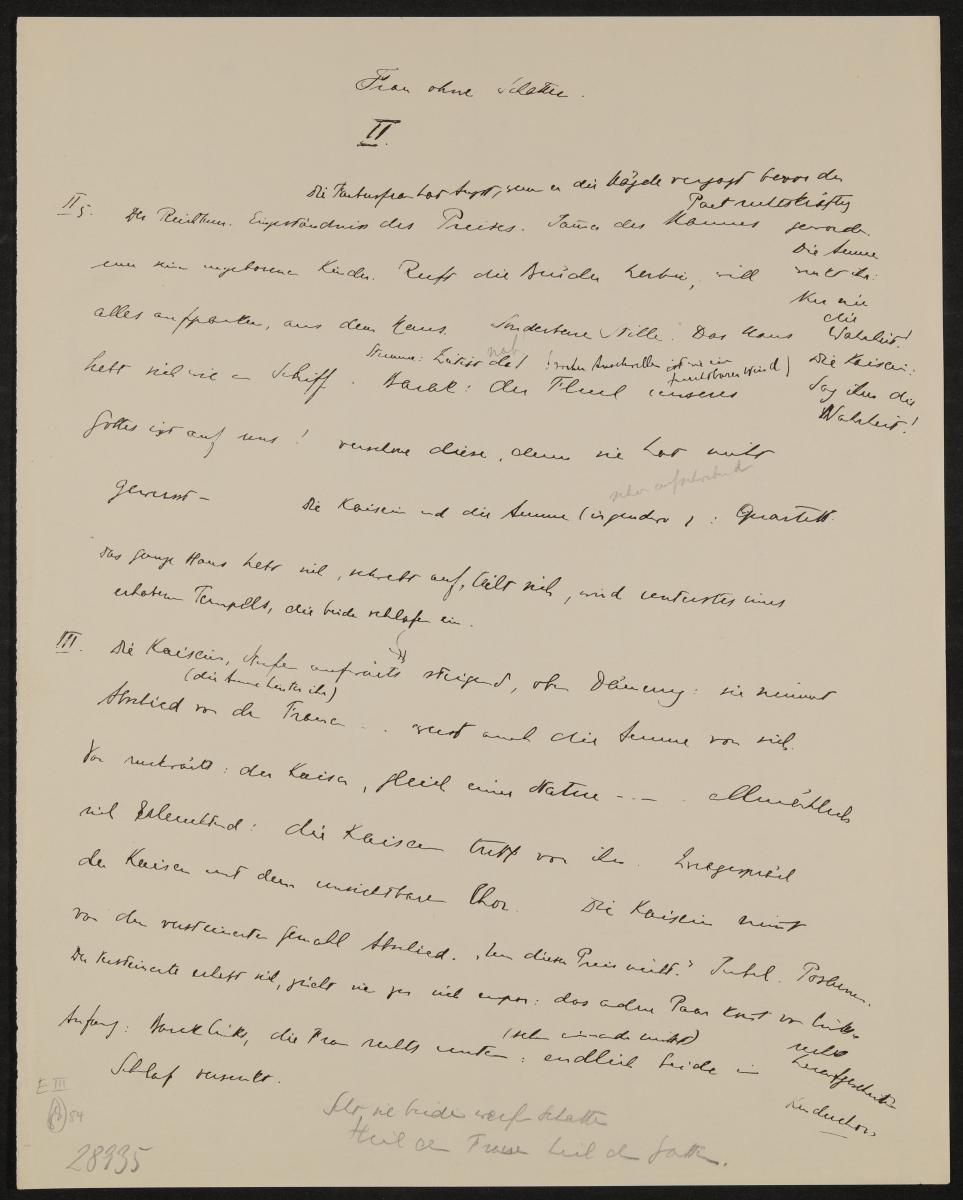 Frau ohne Schatten.
II.
Die Färbersfrau hat Angst, wenn er die Mägde verjagt bevor der
Pact rechtskräftig
geworden.
II 5. Der Reichthum. Eingeständniss des Preises. Jammer des Mannes
um seine ungeborenen Kinder. Ruft die Brüder herbei, will
alles aufpacken, aus dem Haus. Sonderbare Stille. Das Haus
hebt sich wie ein Schiff. Barak: der Fluch unseres
Die Amme
Nur nie
die
Wahrheit!
Die Kaiserin:
Sag ihm die
Wahrheit!
Stimme: Zeit ist da!
nah
Gottes ist auf uns! verschone diese, denn sie hat nicht
gewusst –
Die Kaiserin und die Amme (irgendwo): Quartett.
schon aufschwebend
Das ganze Haus hebt sich, schwebt auf, theilt sich, wird unterstes eines
erhabenen Tempels, die beide schlafen ein.
III. Die Kaiserin, Stufen aufwärts steigend, oben Dämmerung: sie nimmt
(die Amme hinter ihr)
Abschied von der Frauen . . weist auch die Amme von sich.
Von rückwärts: der Kaiser, gleich einer Statue – – . Allmählich
sich belebend: die Kaiserin tritt vor ihn. Zwiegespräch
der Kaiserin mit dem unsichtbaren Chor. Die Kaiserin nimmt
von dem versteinerten Gemahl Abschied. Um diesen Preis nicht! Jubel. Posaunen.
Der Versteinerte erhebt sich, zieht sie zu sich empor: das andere Paar kommt von links
rechts
Anfang: Barak links, die Frau rechts unten: endlich beide in
(sehen einander nicht)
Schlaf versenkt.
Kinderchor
Seht, sie beide werfen Schatten
Heil der Frauen Heil dem Gatten.
E III
84
28935